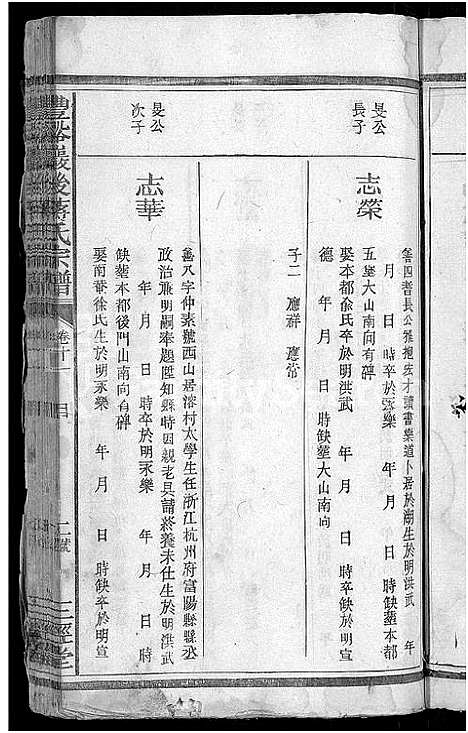 旻公
長子
志榮
善四耆長公雅抱宏才讀書樂道卜居於湖生於明洪武 年
月 日 時卒於永樂 年 月 日 時缺葬本都
五崖大山南向有碑
娶本都俞氏卒於明洪武 年 月 日 時卒缺於明宣
德 年 月 日 時缺葬大山南向
子二 應祥 應常
旻公
次子
志華
善八字仲素號西山居溶村太學生任浙江杭州府富陽縣縣丞
政治廉明嗣奉題陞知縣時因親老具請終養未仕生於明洪武
年 月 日 時卒於明永樂 年 月 日 時
缺葬本都後門山南向有碑
娶南菴徐氏生於明永樂 年 月 日 時缺卒於明宣
豐谿巖後蔣氏宗譜
卷十一
昌
仁號
三徑堂